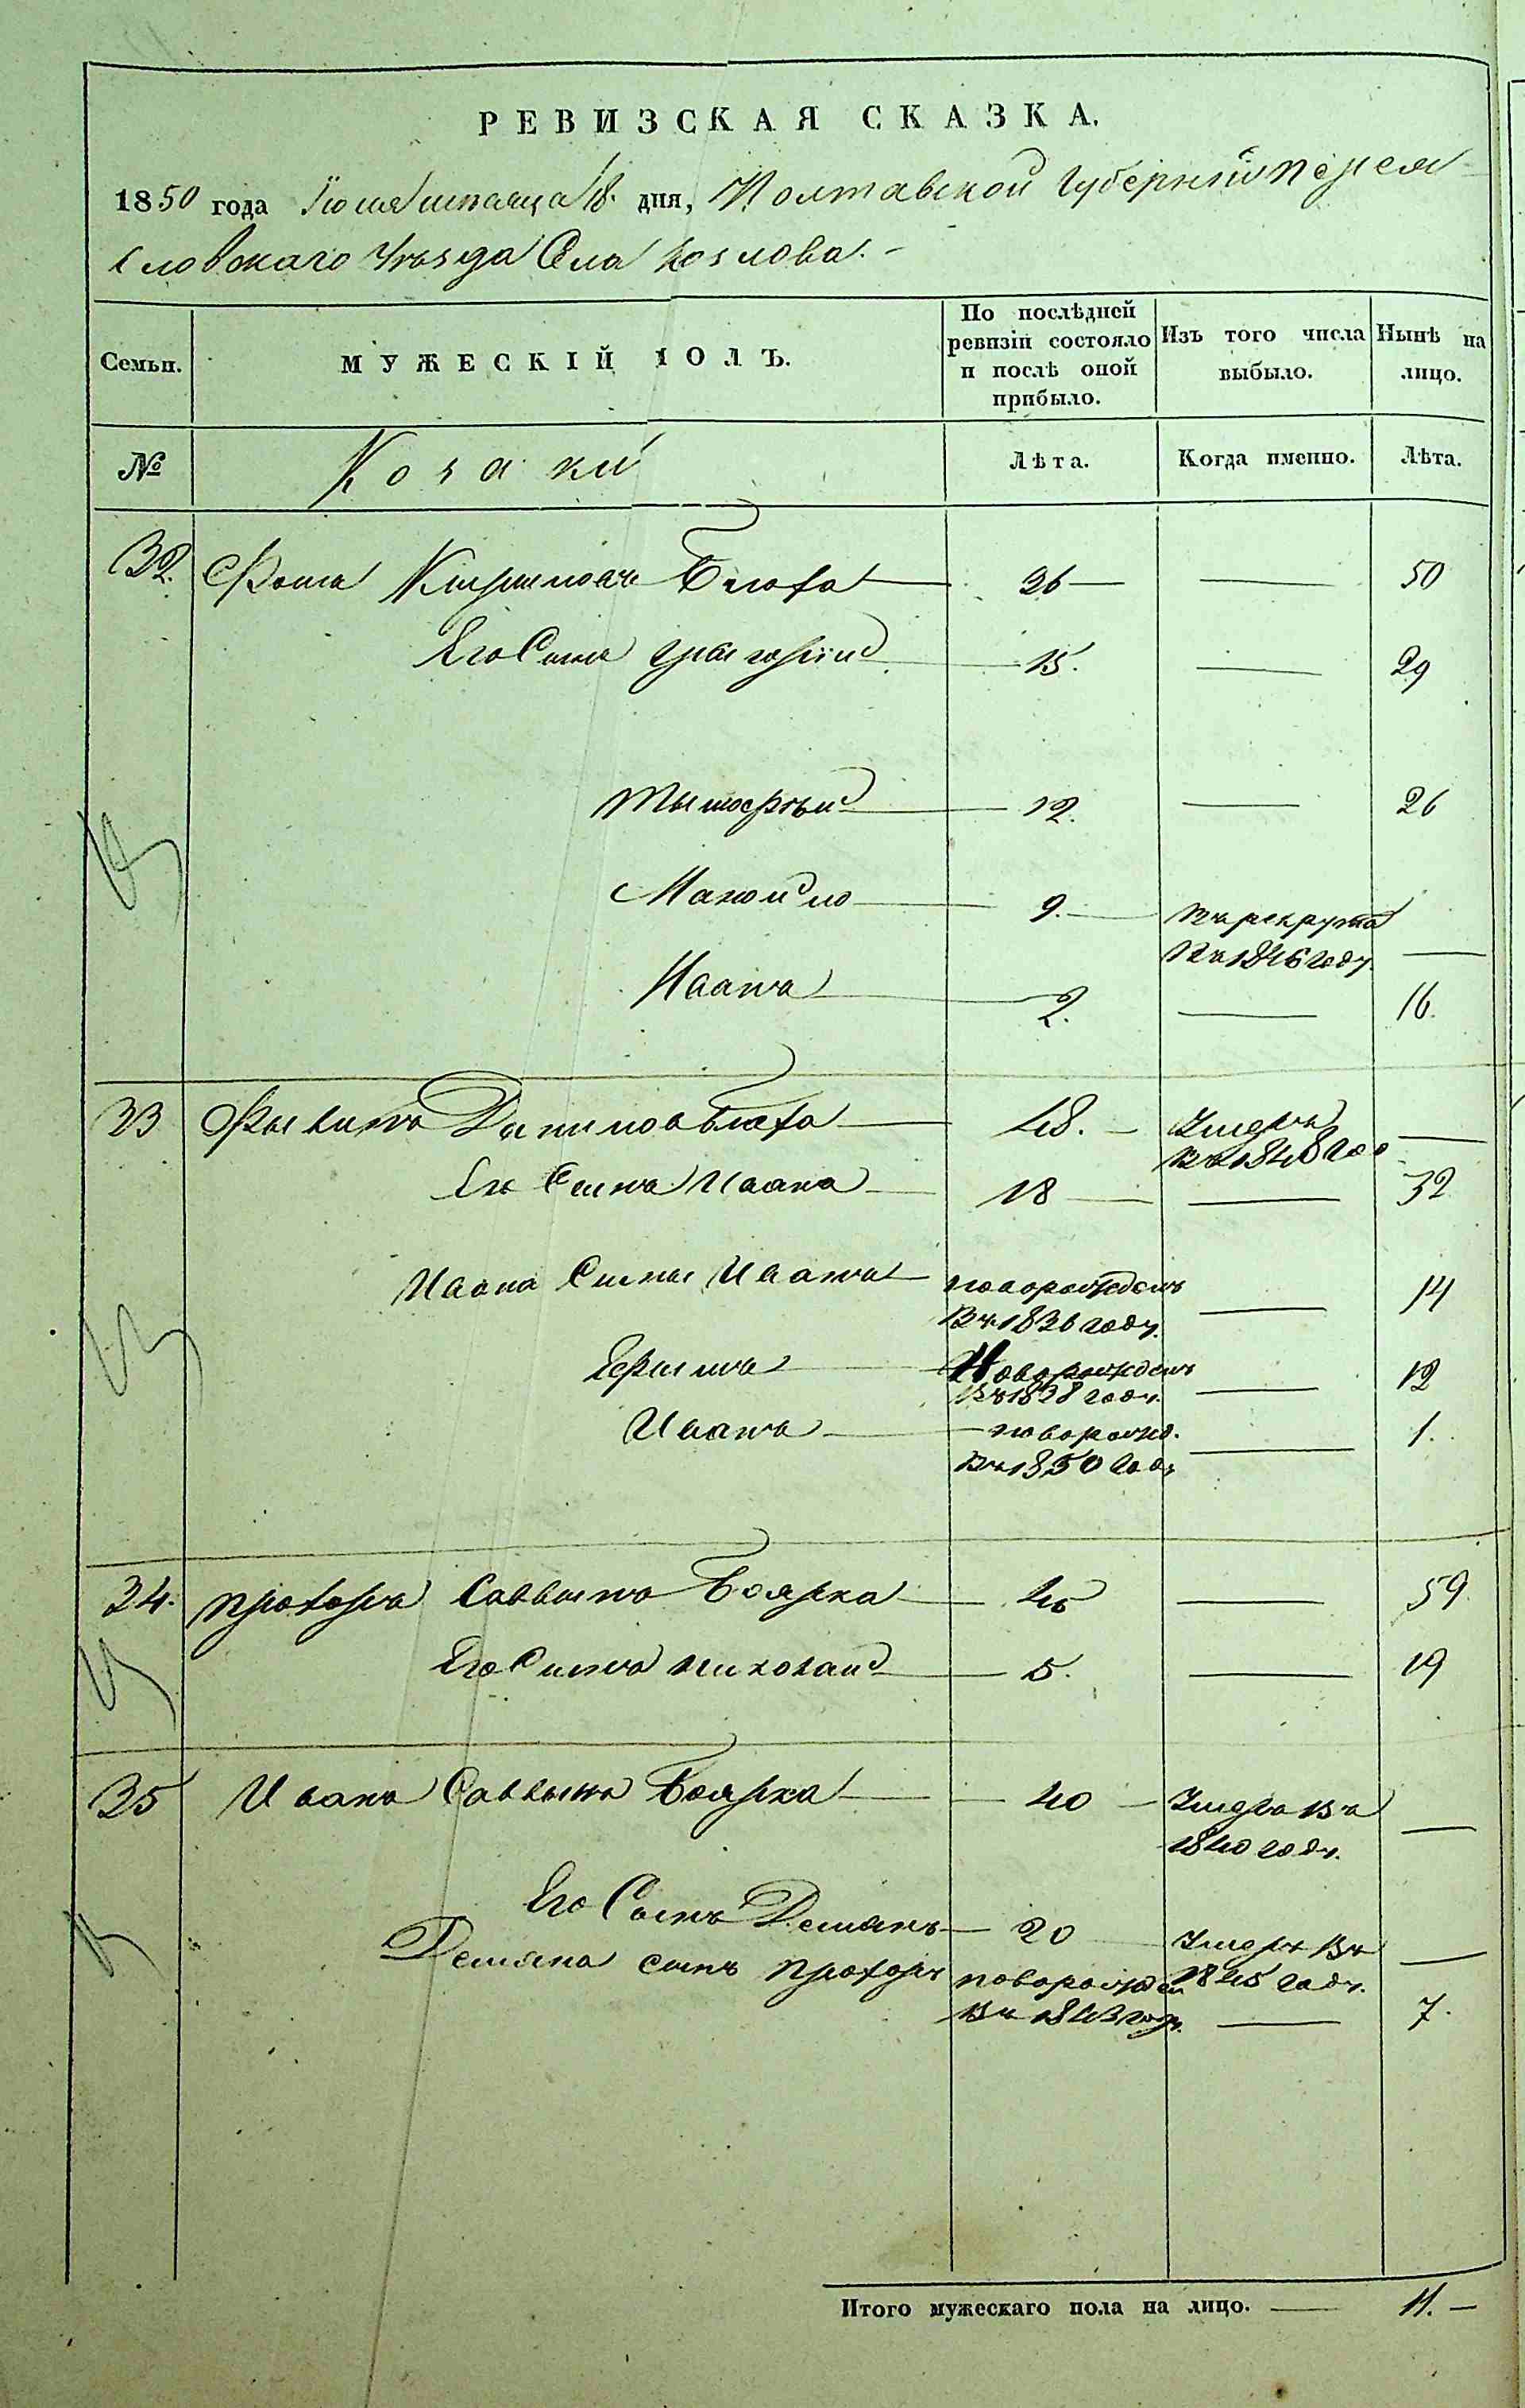 РЕВИЗСКАЯ СКАЗКА.
1850 года Іюля мѣсяца 18. дня, Полтавской губерніи Перея
словскаго Уѣзда Села Козлова.
Семьи. МУЖЕСКІЙ ПОЛЪ. По послѣдней ревизіи состояло и послѣ оной прибыло. Изъ того числа выбыло. Нынѣ на лицо.
№ Козаки Лѣта. Когда именно. Лѣта.
32. Фома Кириловъ Блоха 36 — — 50
Его Сыны Григорій 15. — 29
Тымофѣй 12. — 26
Манойло 9. Въ рекрута
Въ 1846 году. —
Иванъ 2. — 16.
33 Филипъ Даниловъ Блоха 48. — Умеръ
Въ 1848 год —
Его Сынъ Иванъ 18 — — 32
Ивана Сыны Иванъ новорожденъ
Въ 1836 году. — 14
Ефимъ Новорожденъ
Въ 1838 году. — 12
Иванъ новорожд.
Въ 1850 году — 1.
34. Прохоръ Саввинъ Боярка 45 — 59
Его Сынъ Николай 5. — 19
35 Иванъ Саввинъ Боярка 40 — Умеръ Въ
1840 году. —
Его Сынъ Демянъ 20 Умеръ Въ
1845 году. —
Демяна сынъ Прохоръ новорожден
Въ 1843 году. — 7.
Итого мужескаго пола на лицо. — 11. —